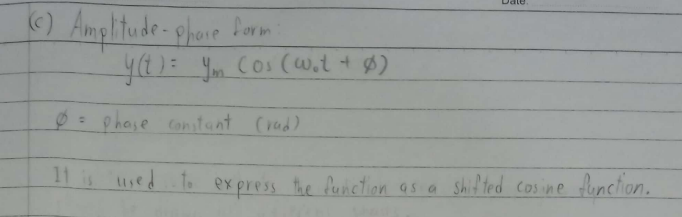 Date:
(c) Amplitude-phase form:
y(t) = yₘ cos(ω₀t + ø)
ø = phase constant (rad)
It is used to express the function as a shifted cosine function.